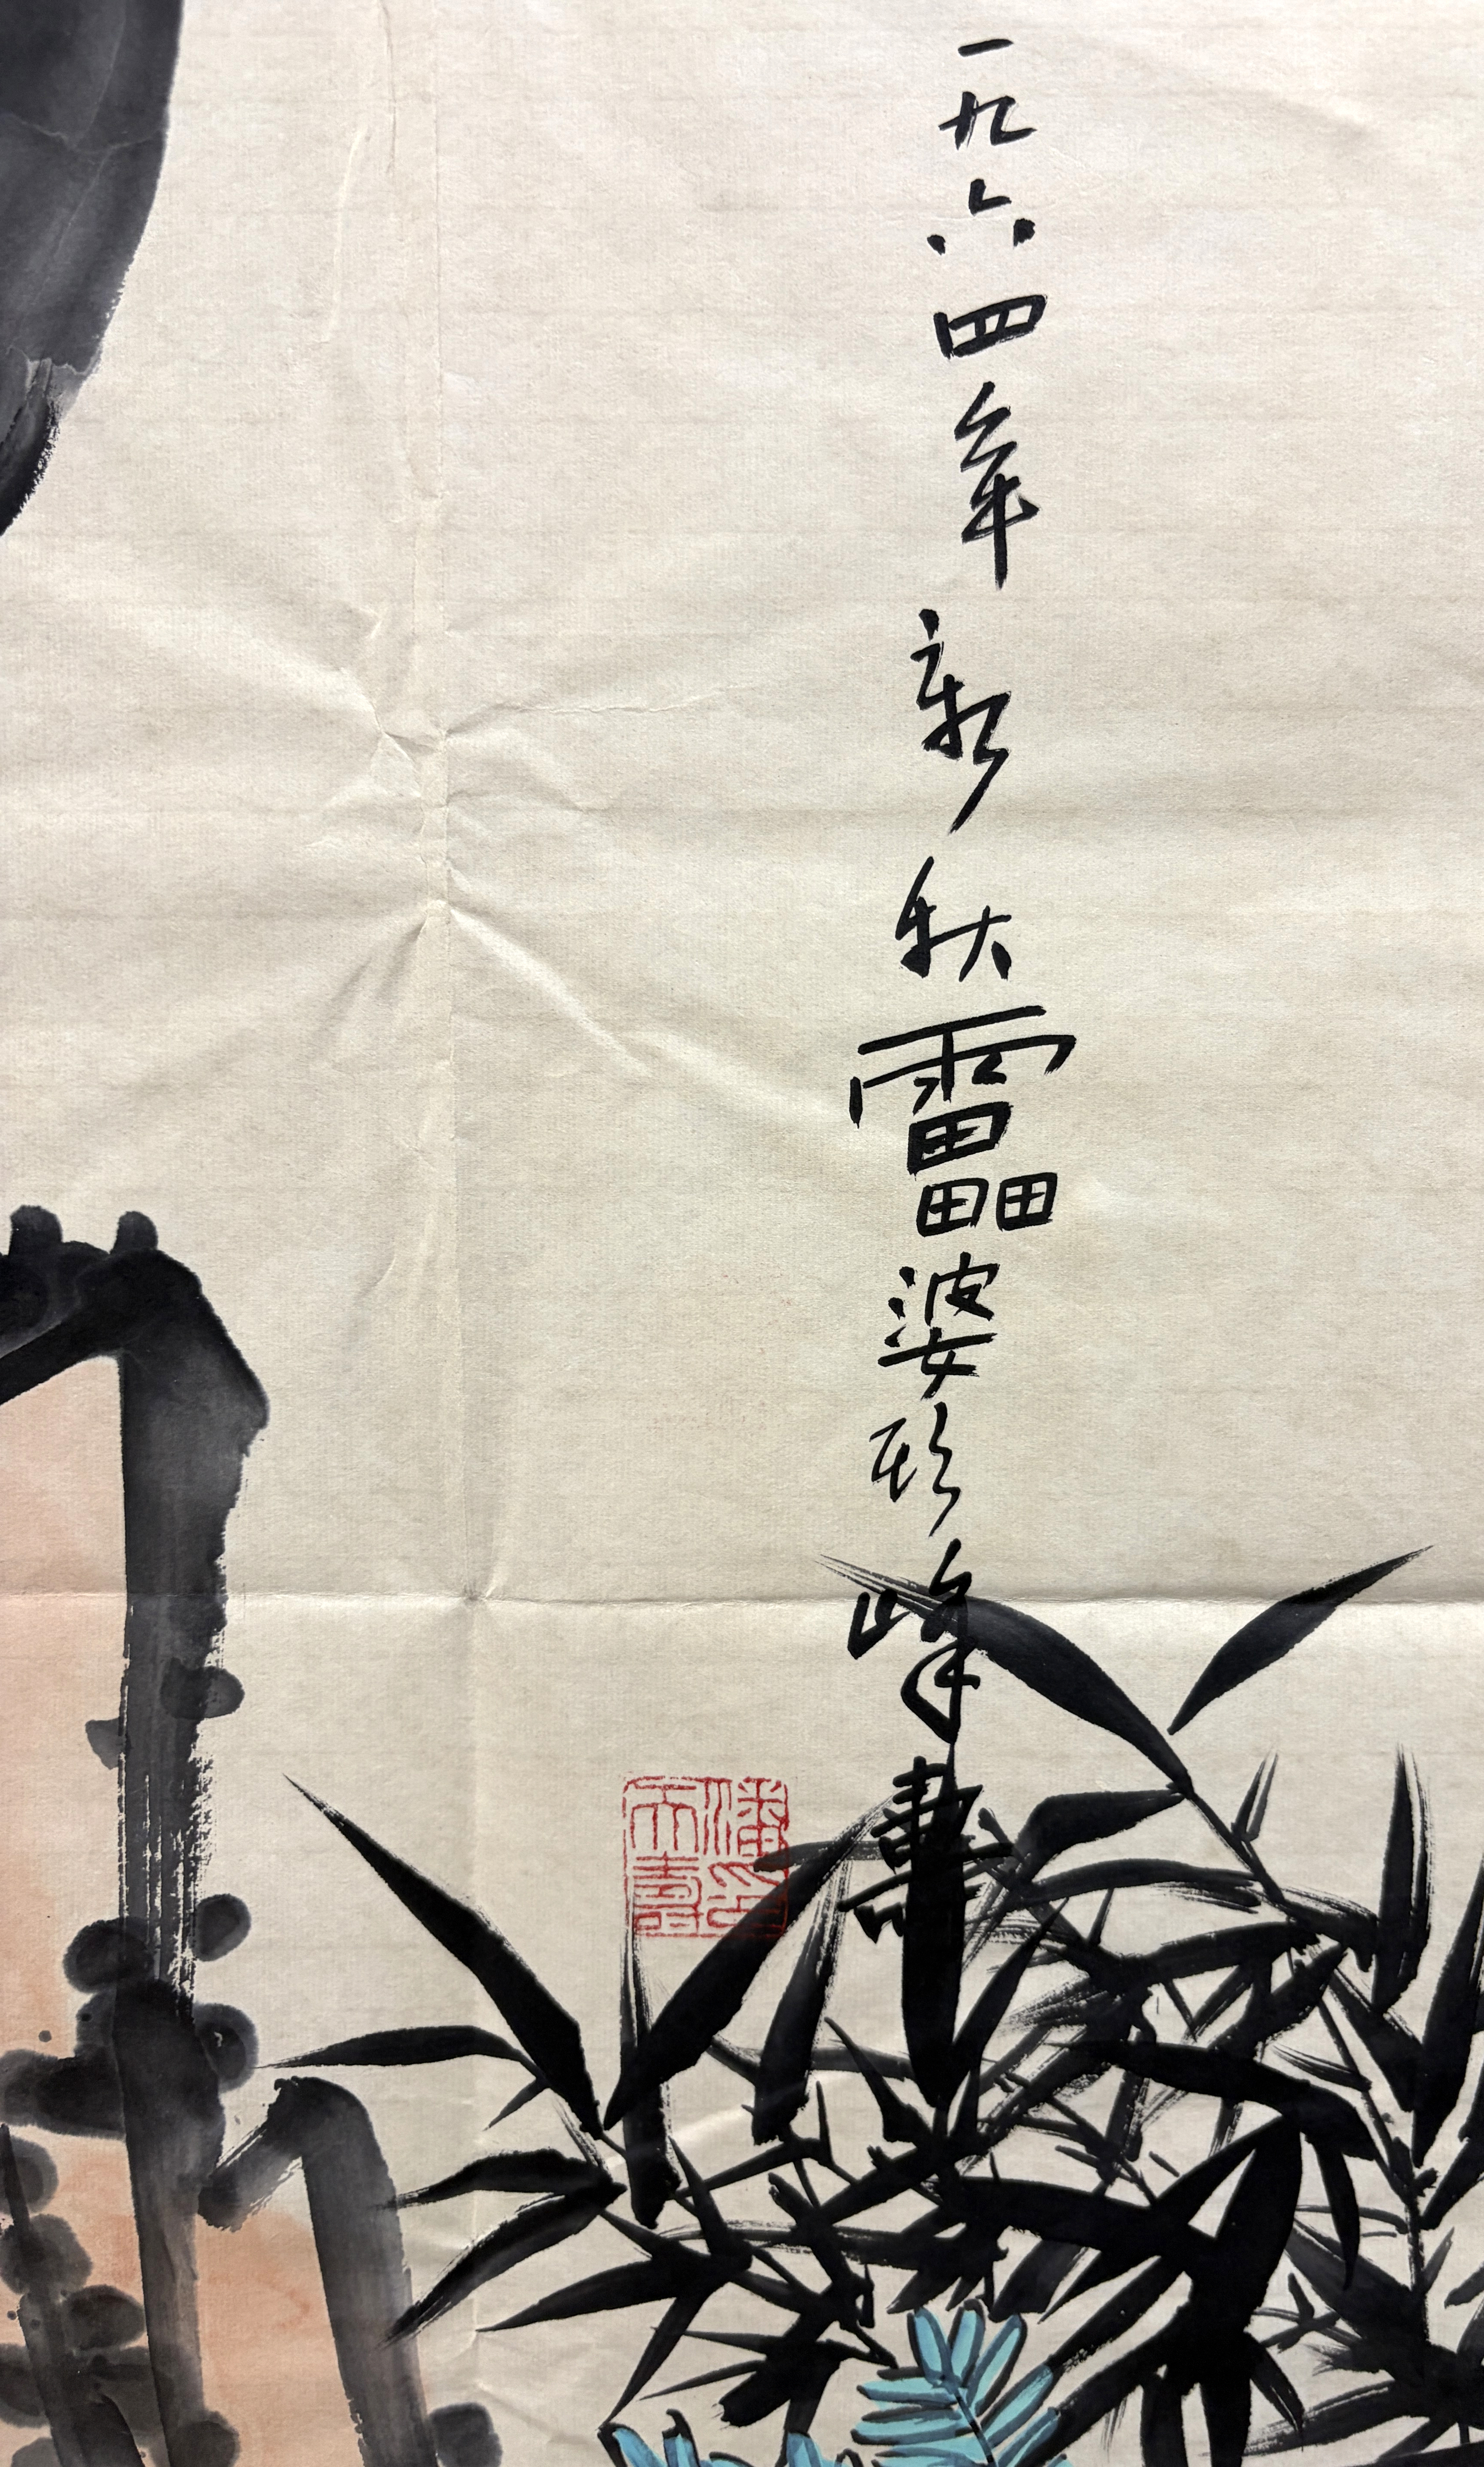 一九六四年新秋靁婆頭峰壽
潘天壽印